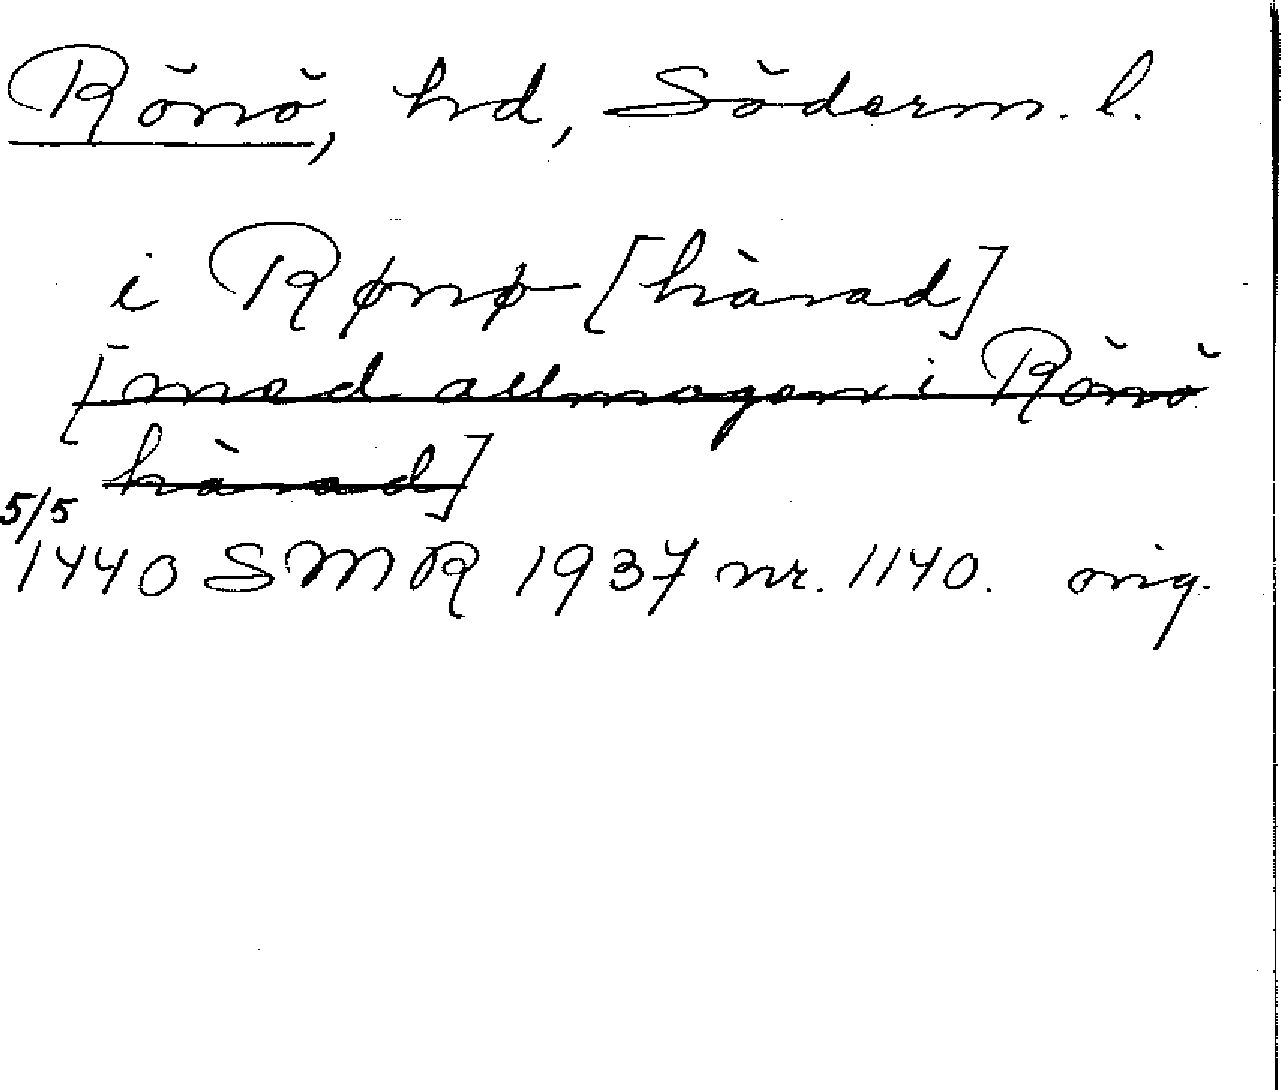 Rönö, hd, Söderm. l.
i Rønø [härad]
[med allmogen i Rönö
härad]
5/5
1440 SMR 1937 nr. 1140. orig.